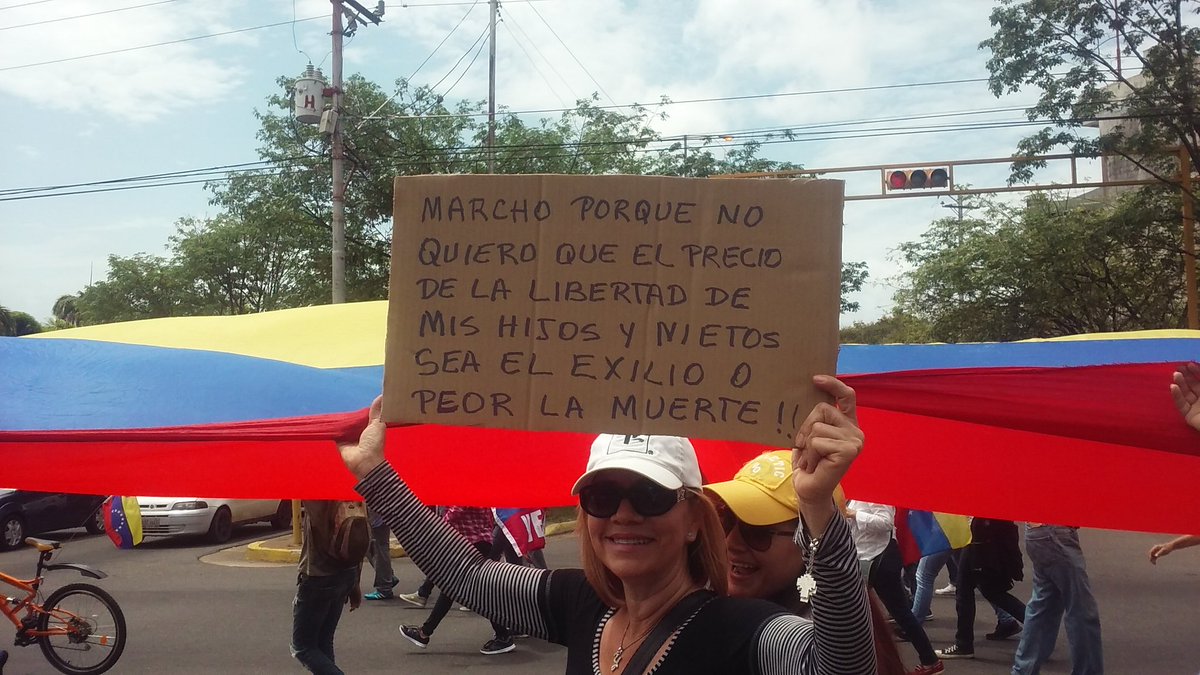 MARCHO PORQUE NO
QUIERO QUE EL PRECIO
DE LA LIBERTAD DE
MIS HIJOS Y NIETOS
SEA EL EXILIO O
PEOR LA MUERTE!!
H